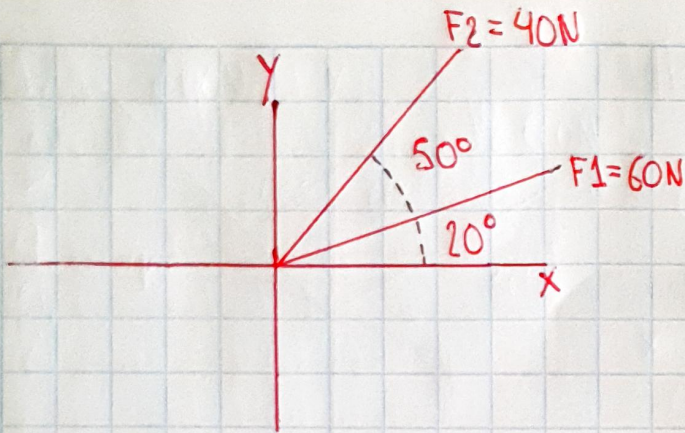 F2=40N
Y
50°
F1=60N
20°
X